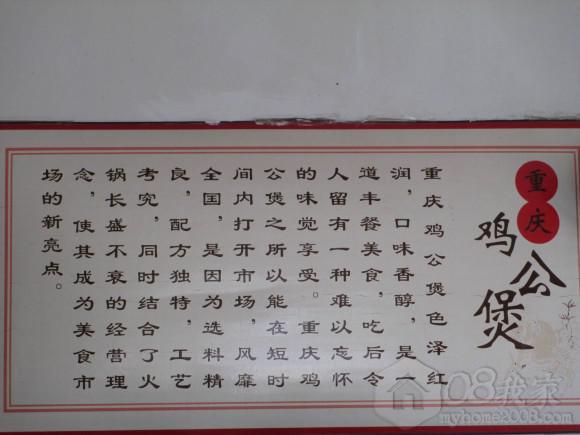 重庆
鸡公煲
重庆鸡公煲色泽红
润，口味香醇，是一
道丰餐美食，吃后令
人留有一种难以忘怀
的味觉享受。重庆鸡
公煲之所以能在短时
间内打开市场，风靡
全国，是因为选料精
良，配方独特，工艺
考究，同时结合了火
锅长盛不衰的经营理
念，使其成为美食市
场的新亮点。
08我家
myhome2008.com